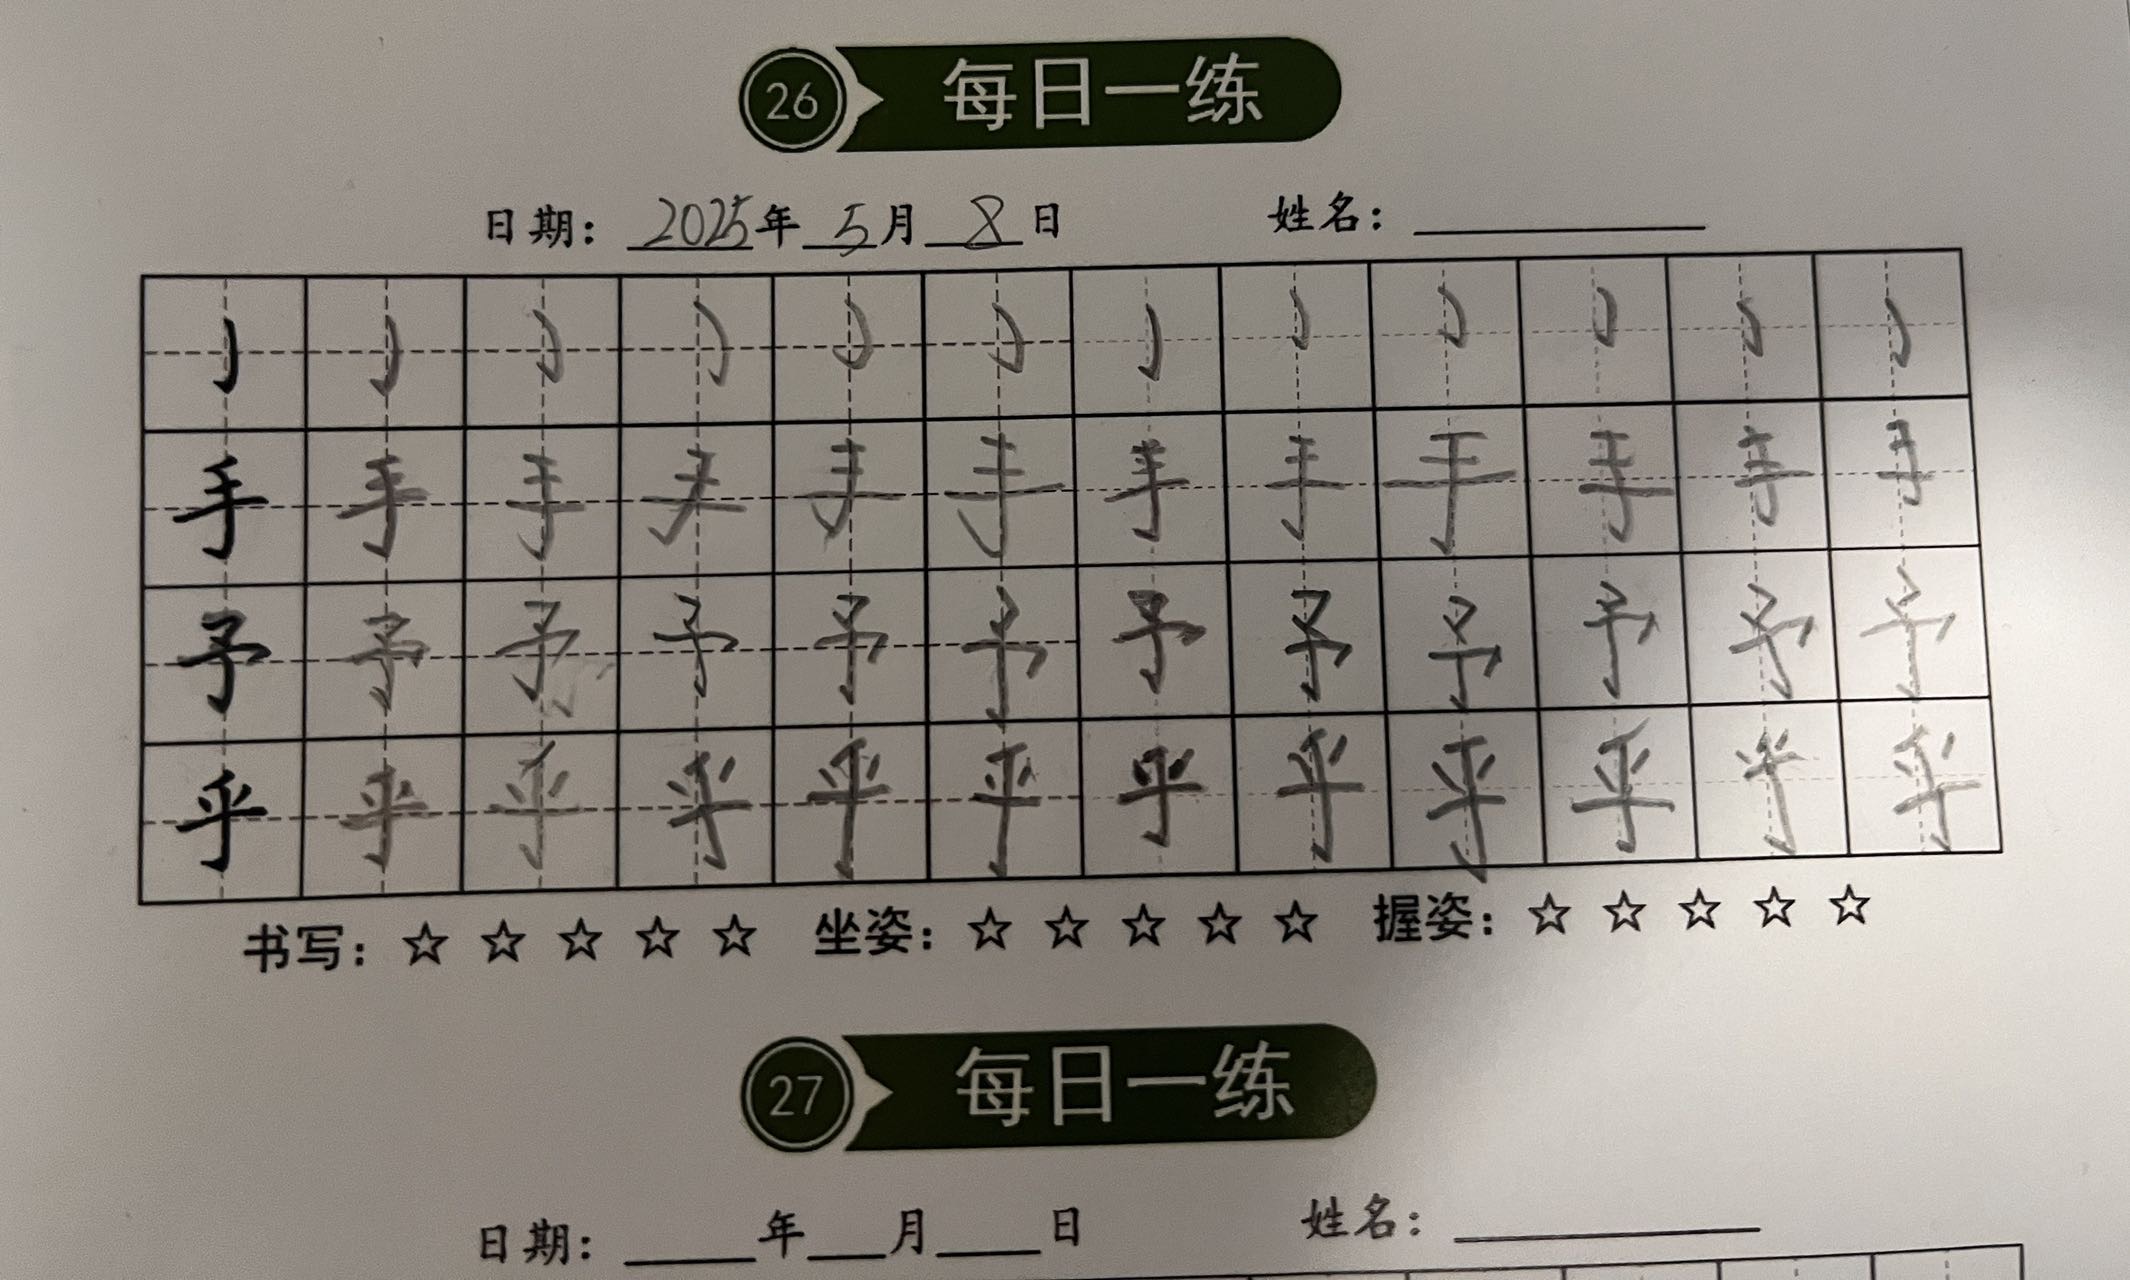 26 每日一练
日期： 2025年 5月 8日 姓名：
亅 亅 亅 亅 亅 亅 亅 亅 亅 亅 亅 亅
手 手 手 手 手 手 手 手 手 手 手 手
予 予 予 予 予 予 予 予 予 予 予 予
乎 乎 乎 乎 乎 乎 乎 乎 乎 乎 乎 乎
书写：☆ ☆ ☆ ☆ ☆ 坐姿：☆ ☆ ☆ ☆ ☆ 握姿：☆ ☆ ☆ ☆ ☆
27 每日一练
日期： 年 月 日 姓名：